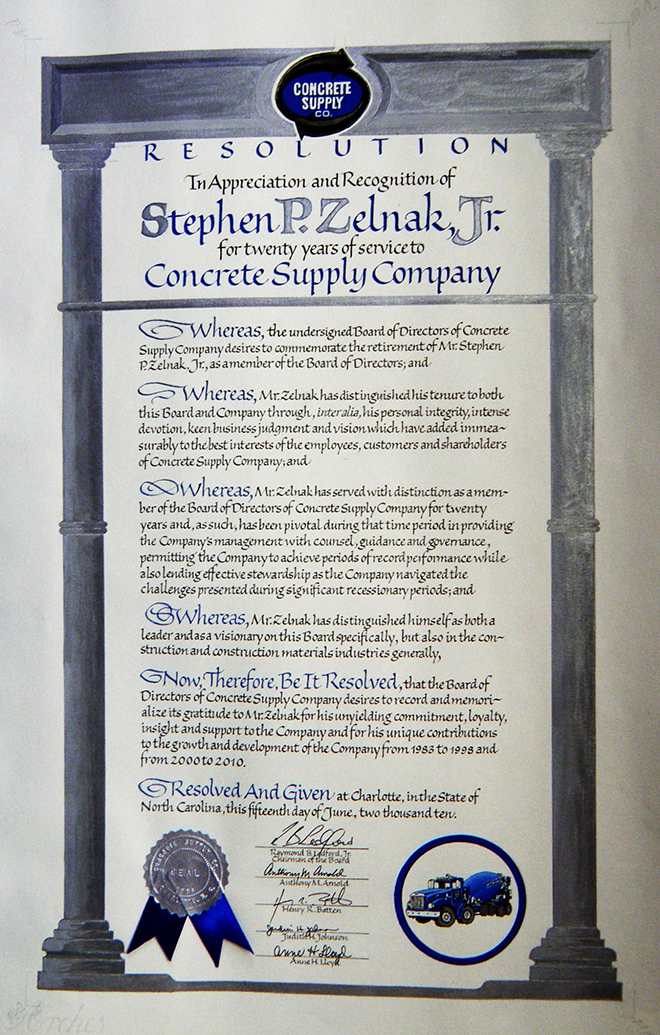 CONCRETE
SUPPLY
CO.
RESOLUTION
In Appreciation and Recognition of
Stephen P. Zelnak, Jr.
for twenty years of service to
Concrete Supply Company
Whereas, the undersigned Board of Directors of Concrete
Supply Company desires to commemorate the retirement of Mr. Stephen
P. Zelnak, Jr., as a member of the Board of Directors; and
Whereas, Mr. Zelnak has distinguished his tenure to both
this Board and Company through, inter alia, his personal integrity, intense
devotion, keen business judgment and vision which have added immea-
surably to the best interests of the employees, customers and shareholders
of Concrete Supply Company; and
Whereas, Mr. Zelnak has served with distinction as a mem-
ber of the Board of Directors of Concrete Supply Company for twenty
years and, as such, has been pivotal during that time period in providing
the Company's management with counsel, guidance and governance,
permitting the Company to achieve periods of record performance while
also lending effective stewardship as the Company navigated the
challenges presented during significant recessionary periods; and
Whereas, Mr. Zelnak has distinguished himself as both a
leader and as a visionary on this Board specifically, but also in the con-
struction and construction materials industries generally,
Now, Therefore, Be It Resolved, that the Board of
Directors of Concrete Supply Company desires to record and memori-
alize its gratitude to Mr. Zelnak for his unyielding commitment, loyalty,
insight and support to the Company and for his unique contributions
to the growth and development of the Company from 1983 to 1998 and
from 2000 to 2010.
Resolved And Given at Charlotte, in the State of
North Carolina, this fifteenth day of June, two thousand ten.
SUPPLY CO
SEAL
Raymond B. Ledford, Jr.
Chairman of the Board
Anthony M. Arnold
Anthony M. Arnold
Henry K. Batten
Judith H. Johnson
Anne H Lloyd
Anne H. Lloyd